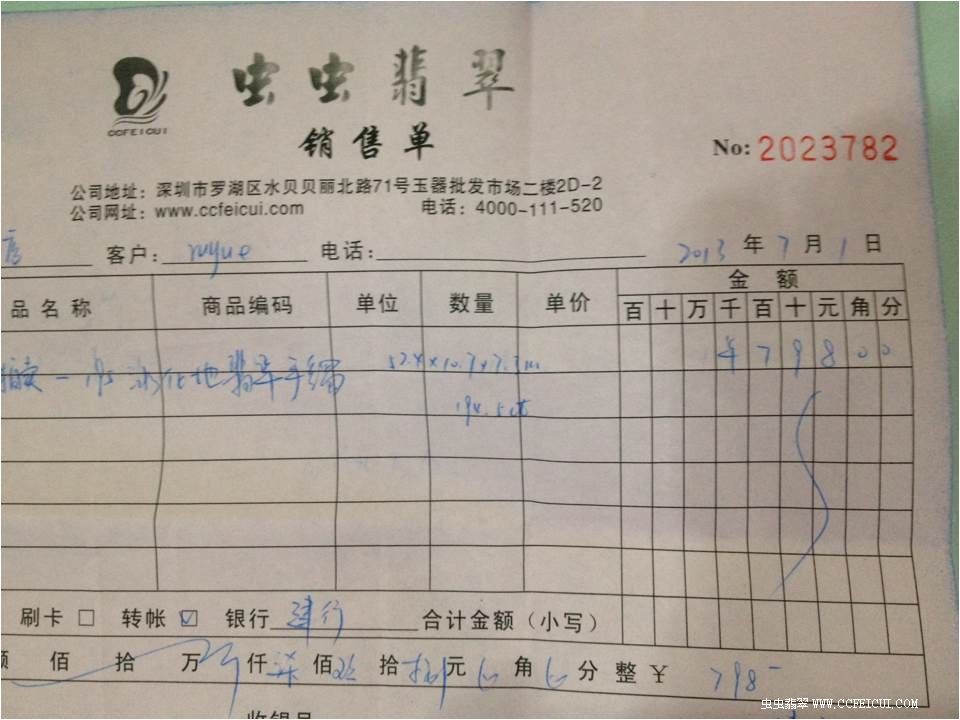 虫虫翡翠
CCFEICUI
销售单
No: 2023782
公司地址：深圳市罗湖区水贝贝丽北路71号玉器批发市场二楼2D-2
公司网址：www.ccfeicui.com 电话：4000-111-520
客户： 电话： 2013 年 7 月 1 日
品名称 商品编码 单位 数量 单价 金额
百 十 万 千 百 十 元 角 分
冰化地翡翠手镯 ¥ 7 9 8 0 0
刷卡 □ 转帐 ☑ 银行 建行 合计金额（小写）
额 佰 拾 万 仟 柒 佰 玖 拾 捌 元 角 分 整 ¥ 798-
收银员
虫虫翡翠 WWW.CCFEICUI.COM